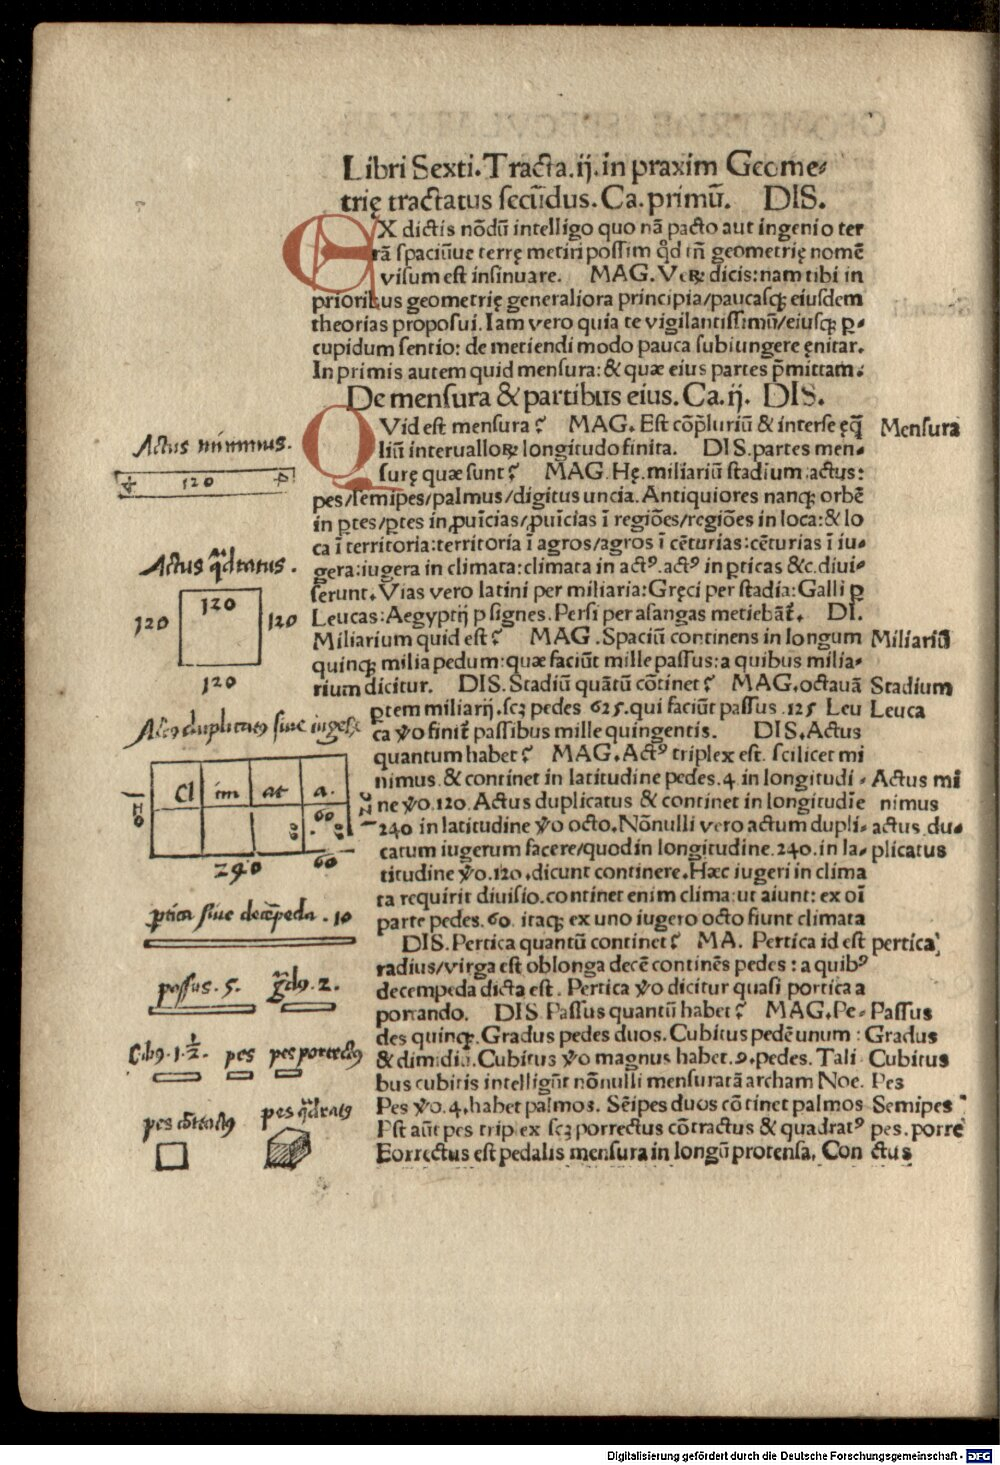 Libri Sexti. Tracta. ij. in praxim Geome-
trię tractatus secūdus. Ca. primū. DIS.
EX dictis nōdū intelligo quo nā pacto aut ingenio ter
rā spaciūue terrę metiri possim qd tn̄ geometrię nomē
visum est insinuare. MAG. Veꝝ dicis: nam tibi in
prioribus geometrię generaliora principia/paucasqꝫ eiusdem
theorias proposui. Iam vero quia te vigilantissimū/eiusqꝫ ꝑ-
cupidum sentio: de metiendi modo pauca subiungere ęnitar.
In primis autem quid mensura: & quæ eius partes p̄mittam.
De mensura & partibus eius. Ca. ij. DIS.
QVid est mensura? MAG. Est cōp̄luriū & inter se ęq̄
liū interualloꝝ longitudo finita. DIS. partes men-
surę quæ sunt? MAG. Hę. miliariū stadium actus:
pes/semipes/palmus/digitus uncia. Antiquiores nanqꝫ orbē
in ꝑtes/ꝑtes in ꝓuīcias/ꝓuīcias ī regiōes/regiōes in loca: & lo
ca ī territoria: territoria ī agros/agros ī cēturias: cēturias ī iu-
gera: iugera in climata: climata in actꝰ. actꝰ in ꝑticas &c. diui-
serunt. Vias vero latini per miliaria: Gręci per stadia: Galli ꝑ
Leucas: Aegyptij p signes. Persi per asangas metiebāt᷑. DI.
Miliarium quid est? MAG. Spaciū continens in longum
quinqꝫ milia pedum: quæ faciūt mille passus: a quibus milia-
rium dicitur. DIS. Stadiū quātū cōtinet? MAG. octauā
ꝑtem miliarij. scꝫ pedes 625. qui faciūt passus .125 Leu
ca v̊o finit᷑ passibus mille quingentis. DIS. Actus
quantum habet? MAG. Actꝰ triplex est. scilicet mi
nimus & continet in latitudine pedes .4. in longitudi-
ne v̊o .120. Actus duplicatus & continet in longitudīe
240 in latitudine v̊o octo. Nōnulli vero actum dupli-
catum iugerum facere/quod in longitudine .240. in la-
titudine v̊o .120. dicunt continere. Hæc iugeri in clima
ta requirit diuisio. continet enim clima: ut aiunt: ex oī
parte pedes .60. itaqꝫ ex uno iugero octo fiunt climata
DIS. Pertica quantū continet? MA. Pertica id est
radius/virga est oblonga decē continēs pedes: a quibꝰ
decempeda dicta est. Pertica v̊o dicitur quasi portica a
portando. DIS Passus quantū habet? MAG. Pe-
des quinqꝫ. Gradus pedes duos. Cubitus pedē unum:
& dimidiū. Cubitus v̊o magnus habet .9. pedes. Tali
bus cubitis intelligūt nōnulli mensuratā archam Noe.
Pes v̊o .4. habet palmos. Sēipes duos cōtinet palmos
Pst aūt pes triplex scꝫ porrectus cōtractus & quadratꝰ
Eorrectus est pedalis mensura in longū protensa. Con
Mensura
Miliariū
Stadium
Leuca
Actus mi
nimus
actus du-
plicatus
pertica
Passus
Gradus
Cubitus
Pes
Semipes
pes. porre
ctus
Actus minimus.
120
Actus qͣdratus.
120
120 120
120
Actꝰ duplicatꝰ siue iugerū
Cl im at a.
120
60
240 60
ꝑtica siue decēpeda . 10
passus. 5. gͣdꝰ. 2.
C.bꝰ. 1. ½. pes pes porrectꝰ
pes cōtractꝰ pes qͣdratꝰ
Digitalisierung gefördert durch die Deutsche Forschungsgemeinschaft - DFG